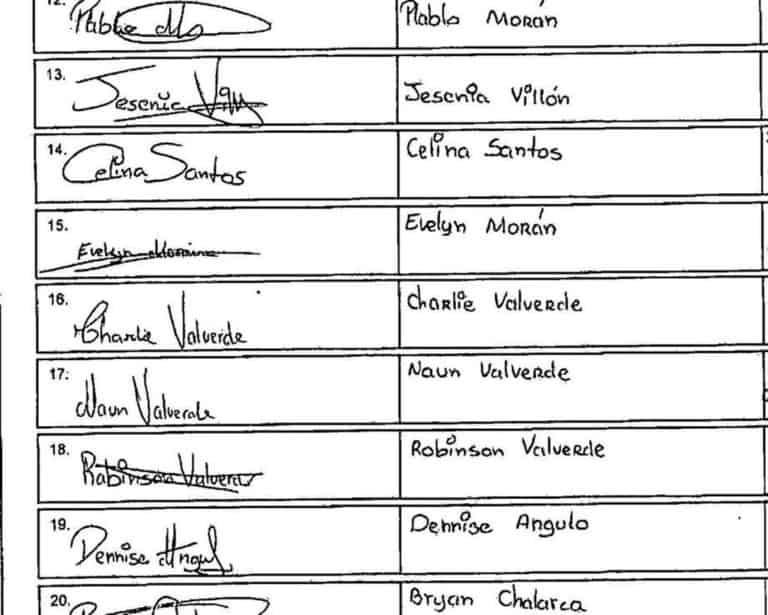 12. Pablo Mo Plablo Morán
13. Jesenia Vill Jesenia Villón
14. Celina Santos Celina Santos
15. Evelyn Evelyn Morán
16. Charlie Valverde Charlie Valverde
17. Naun Valverde Naun Valverde
18. Robinson Valverde Robinson Valverde
19. Dennise Angul Dennise Angulo
20. Bryan Chalarca